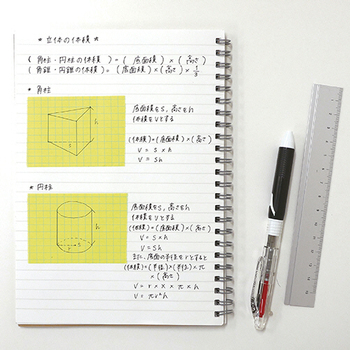 * 立体の体積 *
(角柱・円柱の体積) = (底面積) × (高さ)
(角錐・円錐の体積) = (底面積) × (高さ) × 1/3
* 角柱
底面積をS, 高さをh
体積をVとする
(体積) = (底面積) × (高さ)
V = S × h
V = Sh
h
S
* 円柱
底面積をS, 高さをh
体積をVとする
(体積) = (底面積) × (高さ)
V = S × h
V = Sh
また、底面の半径をrとすると
(体積) = (半径) × (半径) × π
× (高さ)
V = r × r × π × h
V = πr²h
h